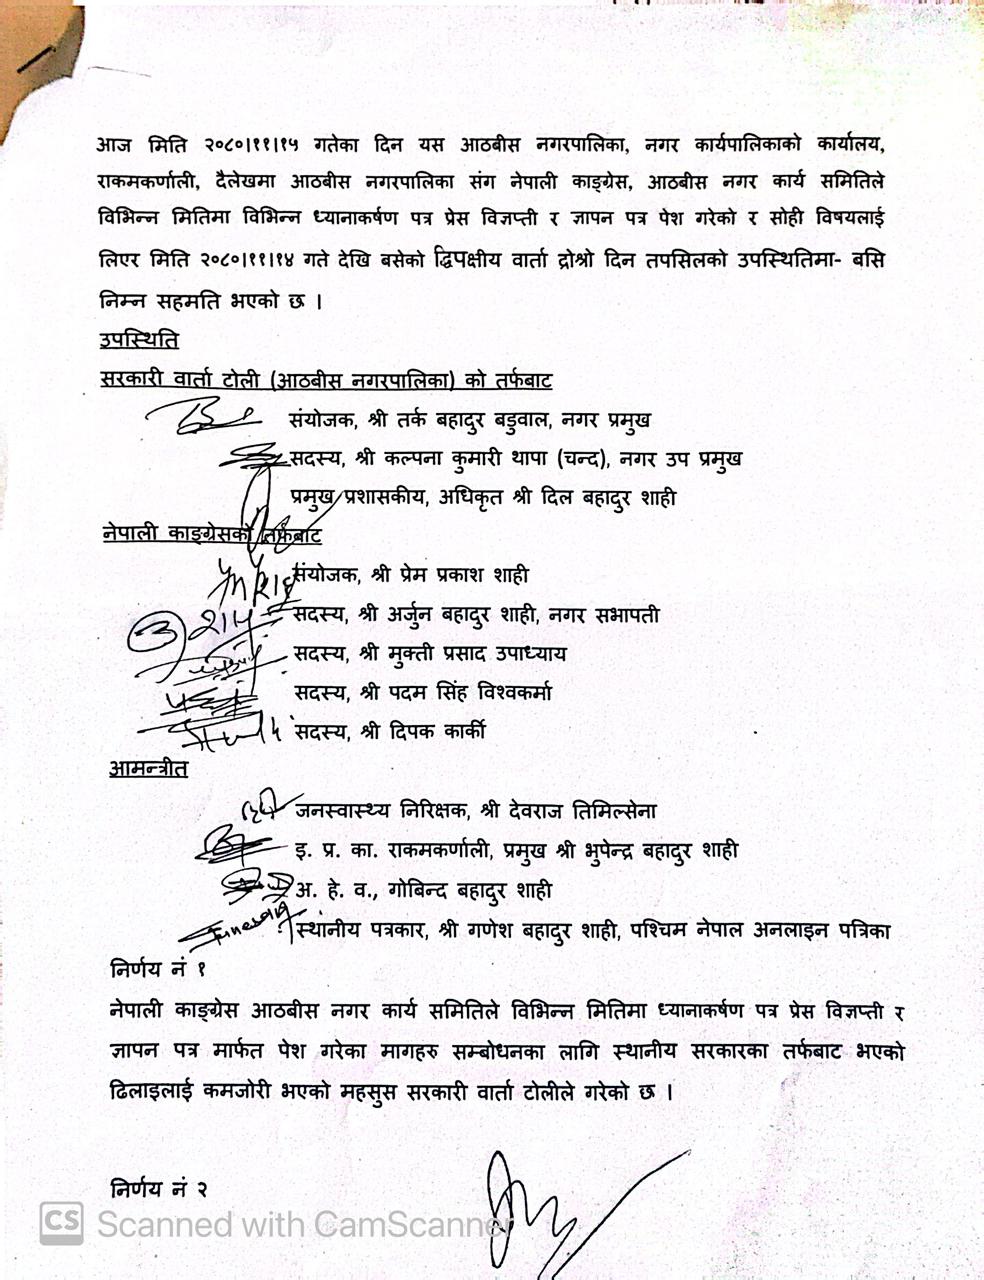 आज मिति २०८०।११।१५ गतेका दिन यस आठबीस नगरपालिका, नगर कार्यपालिकाको कार्यालय,
राकमकर्णाली, दैलेखमा आठबीस नगरपालिका संग नेपाली काङ्ग्रेस, आठबीस नगर कार्य समितिले
विभिन्न मितिमा विभिन्न ध्यानाकर्षण पत्र प्रेस विज्ञप्ती र ज्ञापन पत्र पेश गरेको र सोही विषयलाई
लिएर मिति २०८०।११।१४ गते देखि बसेको द्विपक्षीय वार्ता द्रोश्रो दिन तपसिलको उपस्थितिमा- बसि
निम्न सहमति भएको छ ।
उपस्थिति
सरकारी वार्ता टोली (आठबीस नगरपालिका) को तर्फबाट
संयोजक, श्री तर्क बहादुर बडुवाल, नगर प्रमुख
सदस्य, श्री कल्पना कुमारी थापा (चन्द), नगर उप प्रमुख
प्रमुख प्रशासकीय, अधिकृत श्री दिल बहादुर शाही
नेपाली काङ्ग्रेसको तर्फबाट
संयोजक, श्री प्रेम प्रकाश शाही
सदस्य, श्री अर्जुन बहादुर शाही, नगर सभापती
सदस्य, श्री मुक्ती प्रसाद उपाध्याय
सदस्य, श्री पदम सिंह विश्वकर्मा
सदस्य, श्री दिपक कार्की
आमन्त्रीत
जनस्वास्थ्य निरिक्षक, श्री देवराज तिमिल्सेना
इ. प्र. का. राकमकर्णाली, प्रमुख श्री भुपेन्द्र बहादुर शाही
अ. हे. व., गोबिन्द बहादुर शाही
स्थानीय पत्रकार, श्री गणेश बहादुर शाही, पश्चिम नेपाल अनलाइन पत्रिका
निर्णय नं १
नेपाली काङ्ग्रेस आठबीस नगर कार्य समितिले विभिन्न मितिमा ध्यानाकर्षण पत्र प्रेस विज्ञप्ती र
ज्ञापन पत्र मार्फत पेश गरेका मागहरु सम्बोधनका लागि स्थानीय सरकारका तर्फबाट भएको
ढिलाइलाई कमजोरी भएको महसुस सरकारी वार्ता टोलीले गरेको छ ।
निर्णय नं २
CS Scanned with CamScanner